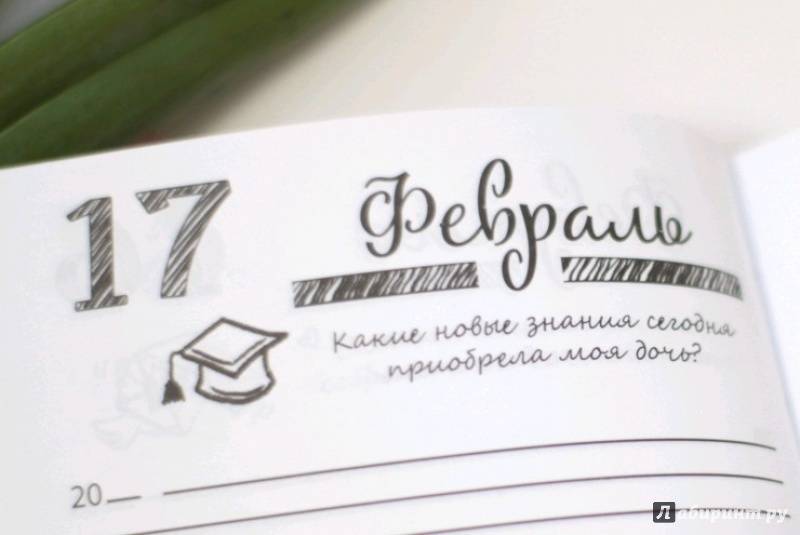 17 Февраль
Какие новые знания сегодня
приобрела моя дочь?
20__
Лабиринт.ру